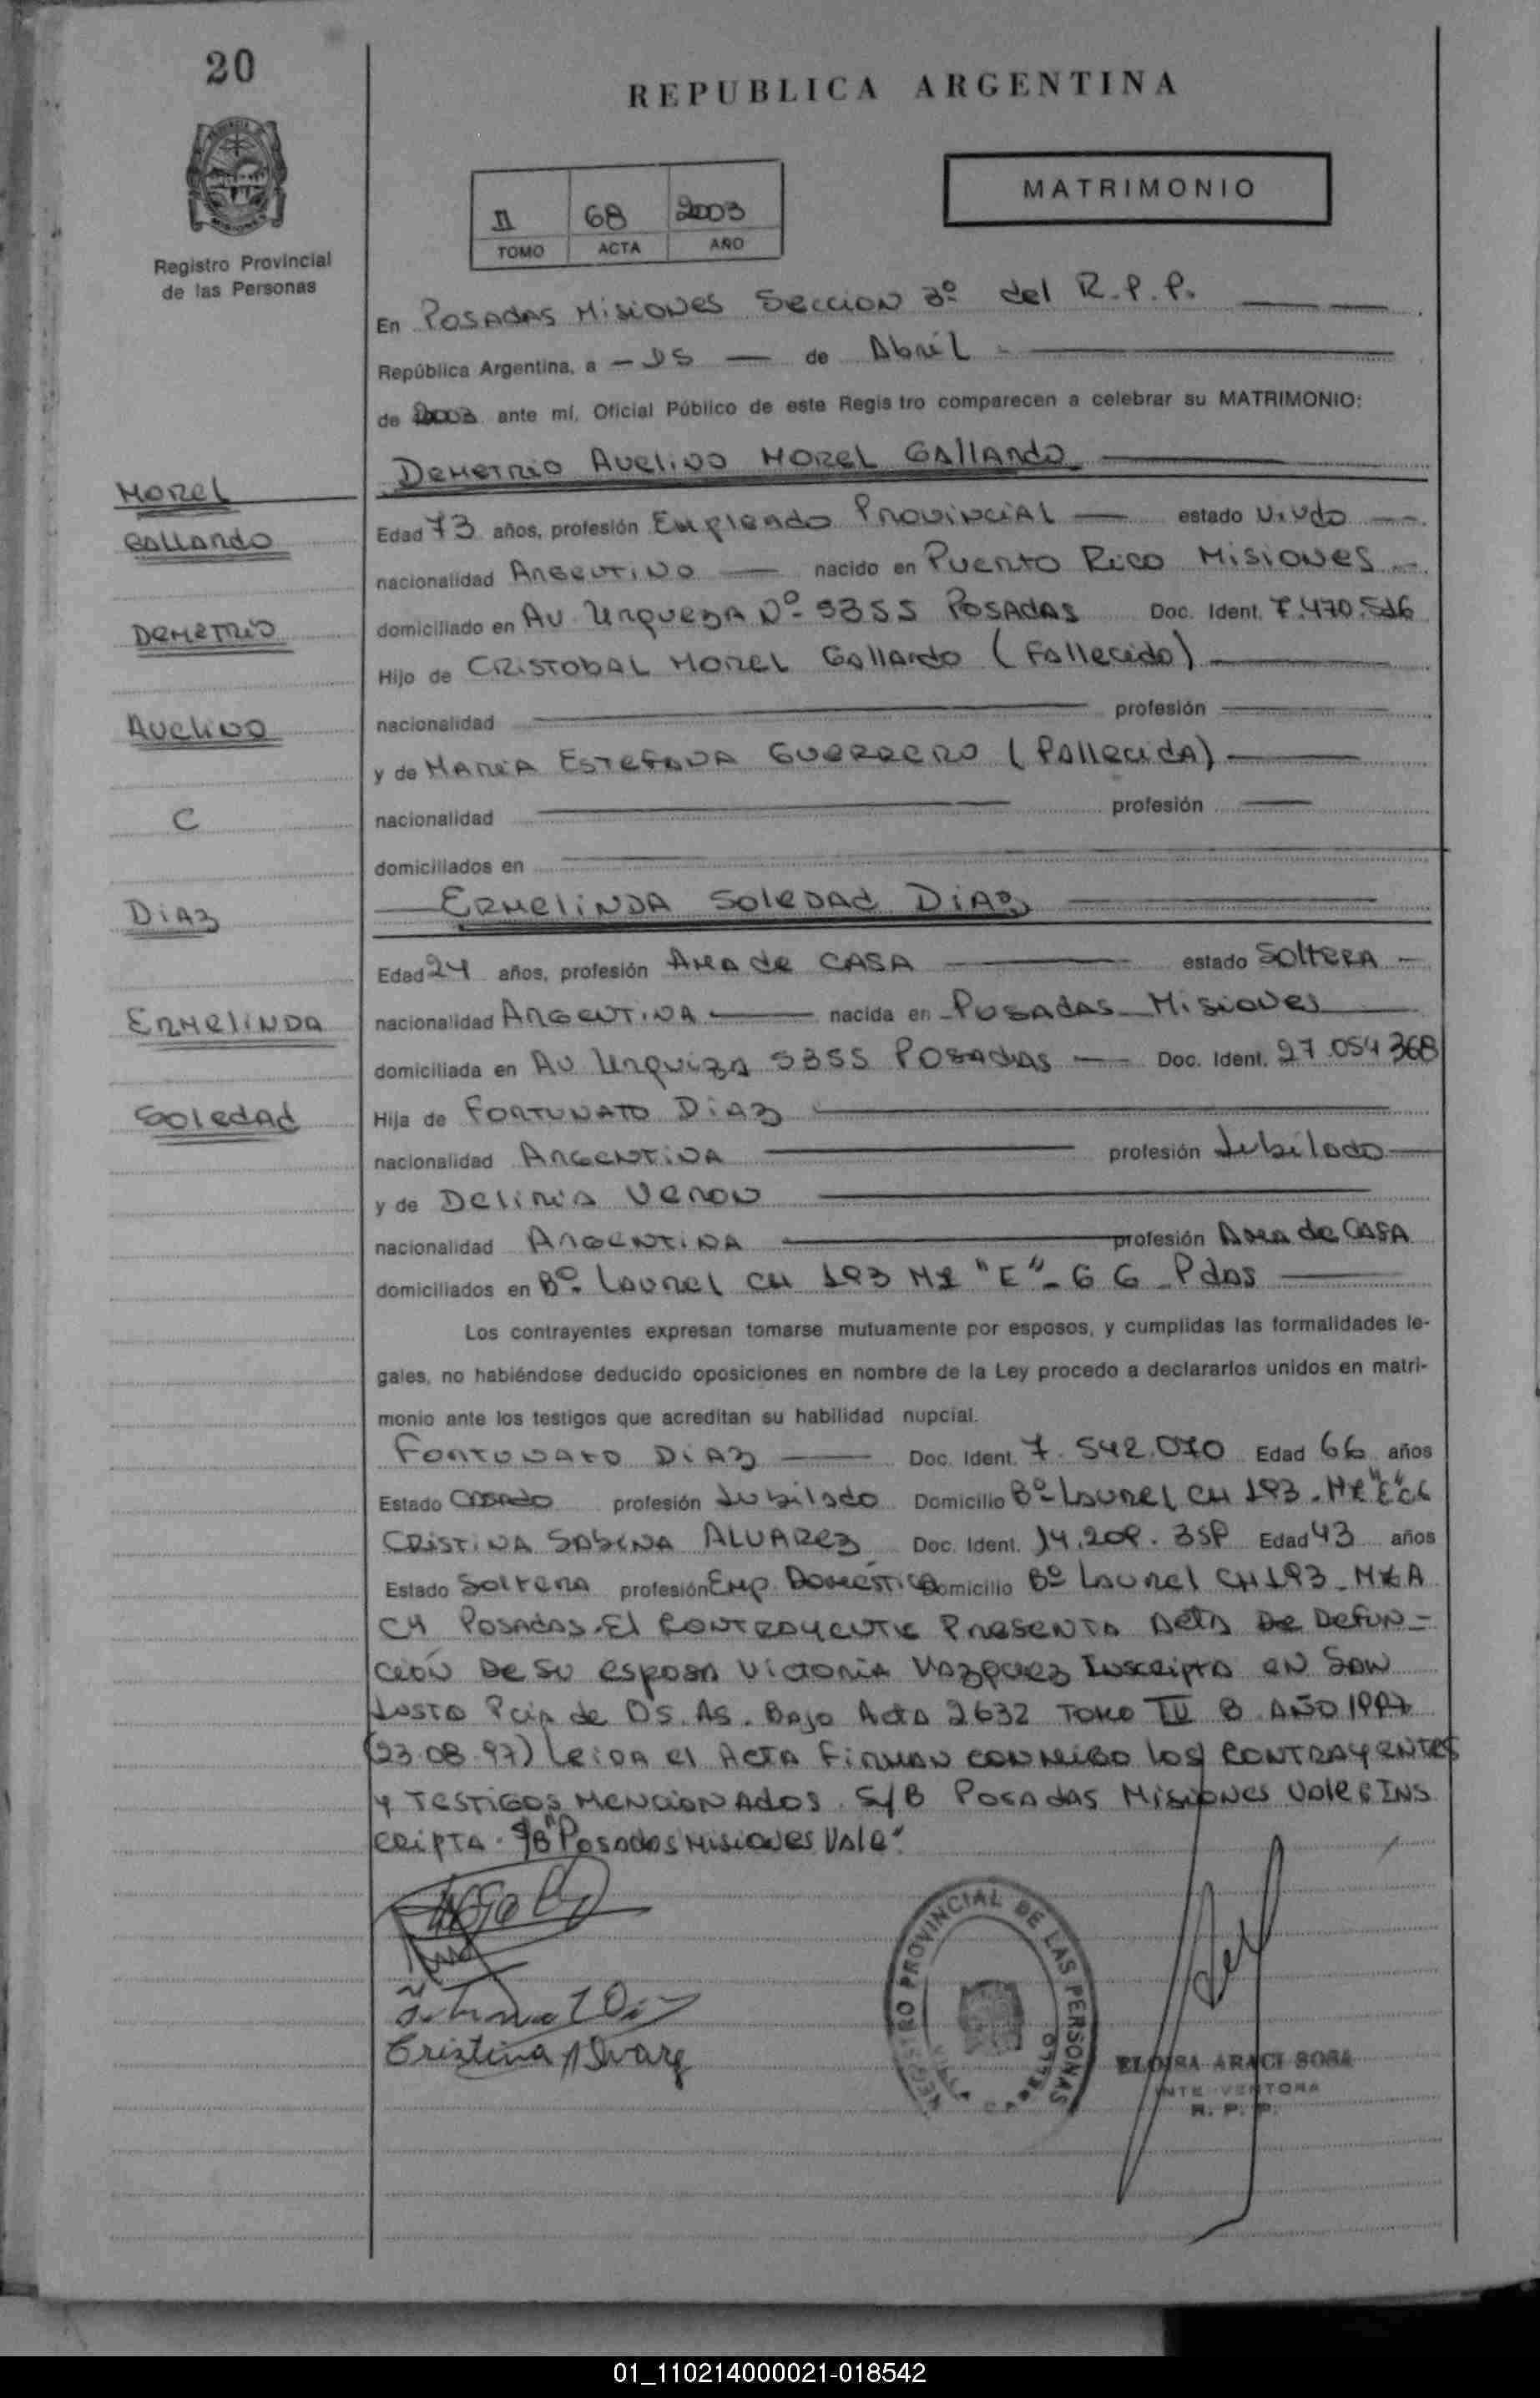 20
REPUBLICA ARGENTINA
MATRIMONIO
II 68 2003
TOMO ACTA AÑO
Registro Provincial
de las Personas
En Posadas Misiones Seccion 3º del R.P.P.
República Argentina, a - 05 - de Abril
de 2003 ante mí, Oficial Público de este Registro comparecen a celebrar su MATRIMONIO:
Demetrio Avelino Morel Gallardo
Morel
Gallardo
Demetrio
Avelino
C
Diaz
Ermelinda
Soledad
Edad 73 años, profesión Empleado Provincial estado Viudo
nacionalidad Argentino nacido en Puerto Rico Misiones
domiciliado en Av Urqueza Nº 5355 Posadas Doc. Ident. 7.470.516
Hijo de Cristobal Morel Gallardo (Fallecido)
nacionalidad profesión
y de Maria Estefana Guerrero (Fallecida)
nacionalidad profesión
domiciliados en
Ermelinda Soledad Diaz
Edad 24 años, profesión Ama de Casa estado Soltera
nacionalidad Argentina nacida en Posadas Misiones
domiciliada en Av Urquiza 5355 Posadas Doc. Ident. 27.054 368
Hija de Fortunato Diaz
nacionalidad Argentina profesión Jubilado
y de Deliria Veron
nacionalidad Argentina profesión Ama de Casa
domiciliados en Bº Laurel CH 193 Mz "E" - C 6 - Pdas
Los contrayentes expresan tomarse mutuamente por esposos, y cumplidas las formalidades le-
gales, no habiéndose deducido oposiciones en nombre de la Ley procedo a declararlos unidos en matri-
monio ante los testigos que acreditan su habilidad nupcial.
Fortunato Diaz Doc. Ident. 7.542.070 Edad 66 años
Estado Casado profesión Jubilado Domicilio Bº Laurel CH 193 - Mz "E" C6
Cristina Sabina Alvarez Doc. Ident. 14.209.359 Edad 43 años
Estado Soltera profesión Emp. Doméstica Domicilio Bº Laurel CH 193 - Mz A
C4 Posadas. El contrayente presenta Acta de Defun-
ción de su esposa Victoria Vazquez Inscripta en San
Justo Pcia de Bs. As. Bajo Acta 2632 Tomo IV B Año 1997
(23.08.97) Leida el Acta firman conmigo los contrayentes
y testigos mencionados. S/B Posadas Misiones Vale e Ins
cripta. S/B "Posadas Misiones Vale"
Cristina Alvarez
REGISTRO PROVINCIAL DE LAS PERSONAS
ELOISA ARACI SOSA
INTERVENTORA
R. P. P.
01_110214000021-018542